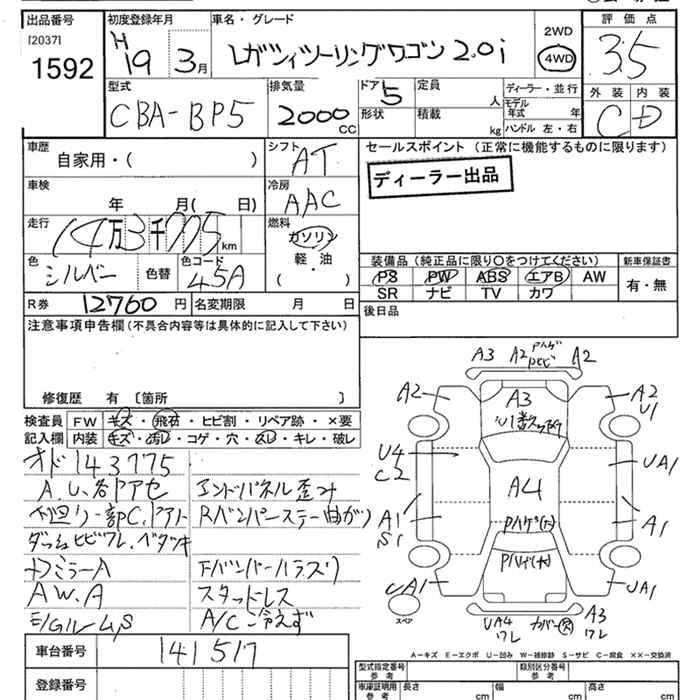 出品番号
[2037]
1592
初度登録年月
H 19 3月
車名・グレード
レガシィツーリングワゴン 2.0i
2WD
4WD
評価点
3.5
外装 内装
C D
型式
CBA-BP5
排気量
2000 CC
ドア 5
形状
定員 人
積載 kg
ディーラー・並行
モデル年式 年
ハンドル 左・右
車歴
自家用・( )
シフト AT
車検
年 月( 日)
冷房 AAC
走行
14万3千775 km
燃料
ガソリン
軽・油
( )
色 シルバー 色替
色コード 45A
R券 12760 円
名変期限 月 日
セールスポイント (正常に機能するものに限ります)
ディーラー出品
装備品 (純正品に限り○をつけてください)
新車保証書
PS PW ABS エアB AW
SR ナビ TV カワ
有・無
後日品
注意事項申告欄 (不具合内容等は具体的に記入して下さい)
修復歴 有 〔箇所 〕
検査員記入欄
FW キズ・飛石・ヒビ割・リペア跡・×要
内装 キズ・汚レ・コゲ・穴・スレ・キレ・破レ
オド 143775
A.U.各Pアセ
下廻り一部PC.Pアト
ダッシュヒビワレ.ベタツキ
ドアミラーA
A.W.A
エンドパネル歪み
Rバンパーステー曲がり
Fバンパーハラズリ
スタッドレス
A/C冷えず
A3 A2 Pハゲ Pヒビ A2
A2
A3
A2
U1
U1数ヶ所
U4
C2
UA1
A4
A1
S1
Pハゲ(大)
A1
Pハゲ(大)
UA1
UA1
スペア
UA4
ワレ
カバー欠
A3
ワレ
A-キズ E-エクボ U-凹み W-補修跡 S-サビ C-腐食 ××-交換済
車台番号 141517
登録番号
型式指定番号 参考
類別区分番号 参考
車庫証明用 参考
長さ cm
幅 cm
高さ cm